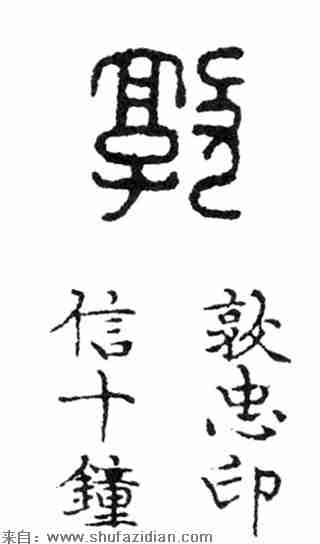 敦
敦忠印
信十鐘
来自：www.shufazidian.com